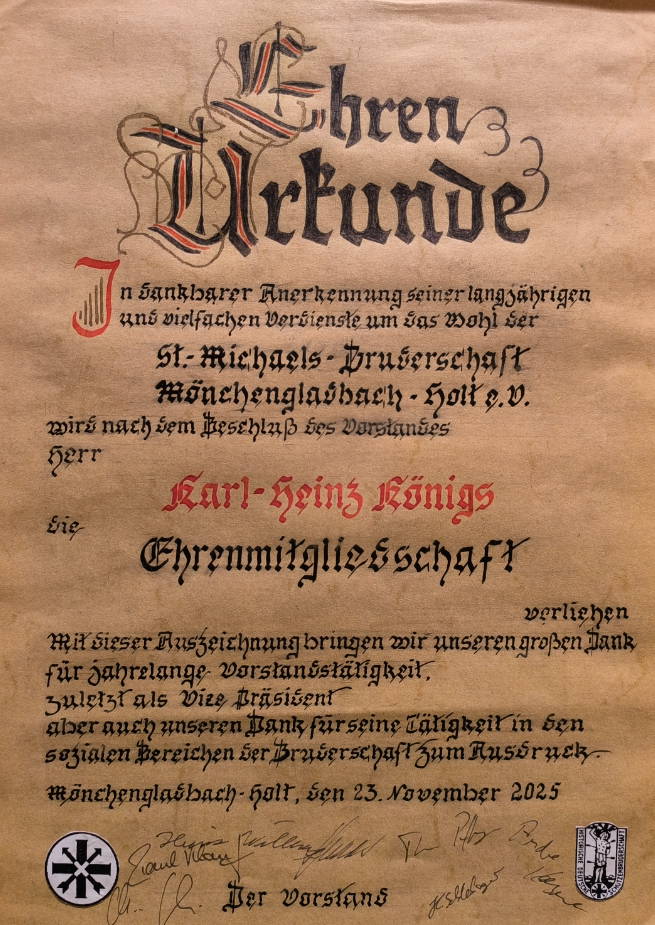 Ehren
Urkunde
In dankbarer Anerkennung seiner langjährigen
und vielfachen Verdienste um das Wohl der
St.-Michaels-Bruderschaft
Mönchengladbach-Holt e.V.
wird nach dem Beschluß des Vorstandes
Herr
Karl-Heinz Königs
die
Ehrenmitgliedschaft
verliehen
Mit dieser Auszeichnung bringen wir unseren großen Dank
für jahrelange Vorstandstätigkeit,
zuletzt als Vize Präsident
aber auch unseren Dank für seine Tätigkeit in den
sozialen Bereichen der Bruderschaft zum Ausdruck.
Mönchengladbach-Holt, den 23. November 2025
Der Vorstand